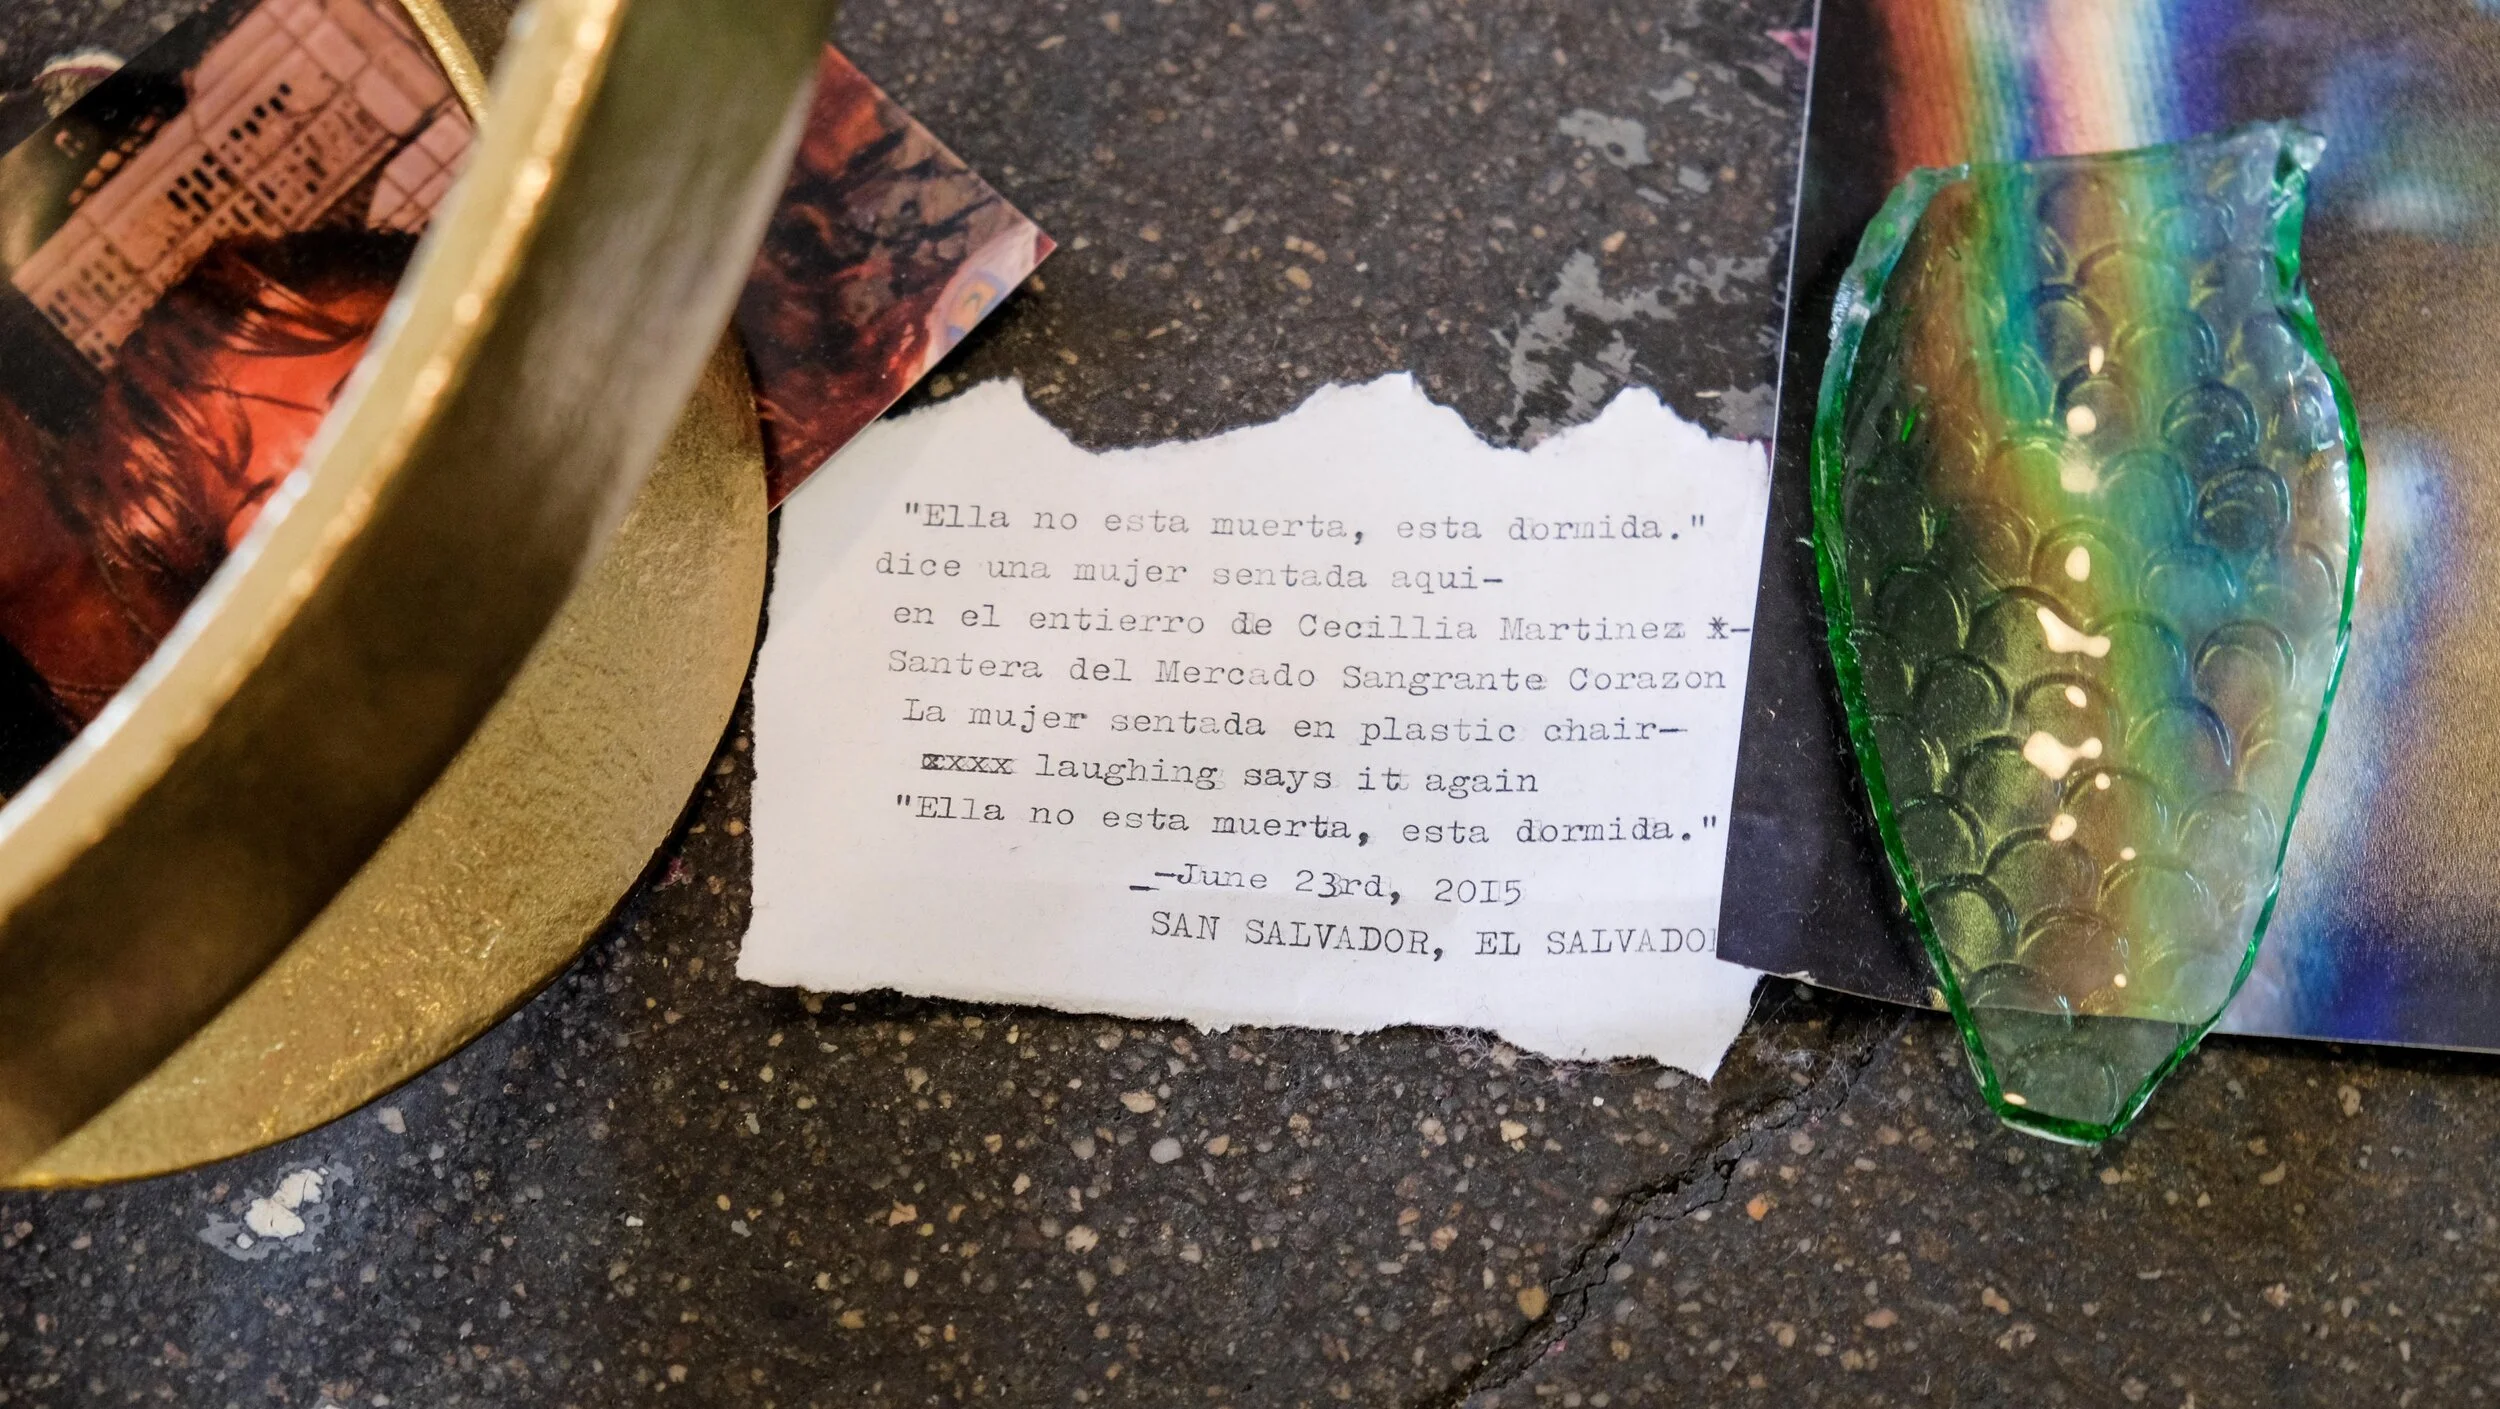 "Ella no esta muerta, esta dormida."
dice una mujer sentada aqui-
en el entierro de Cecillia Martinez x-
Santera del Mercado Sangrante Corazon
La mujer sentada en plastic chair-
xxxx laughing says it again
"Ella no esta muerta, esta dormida."
_-June 23rd, 2015
SAN SALVADOR, EL SALVADO